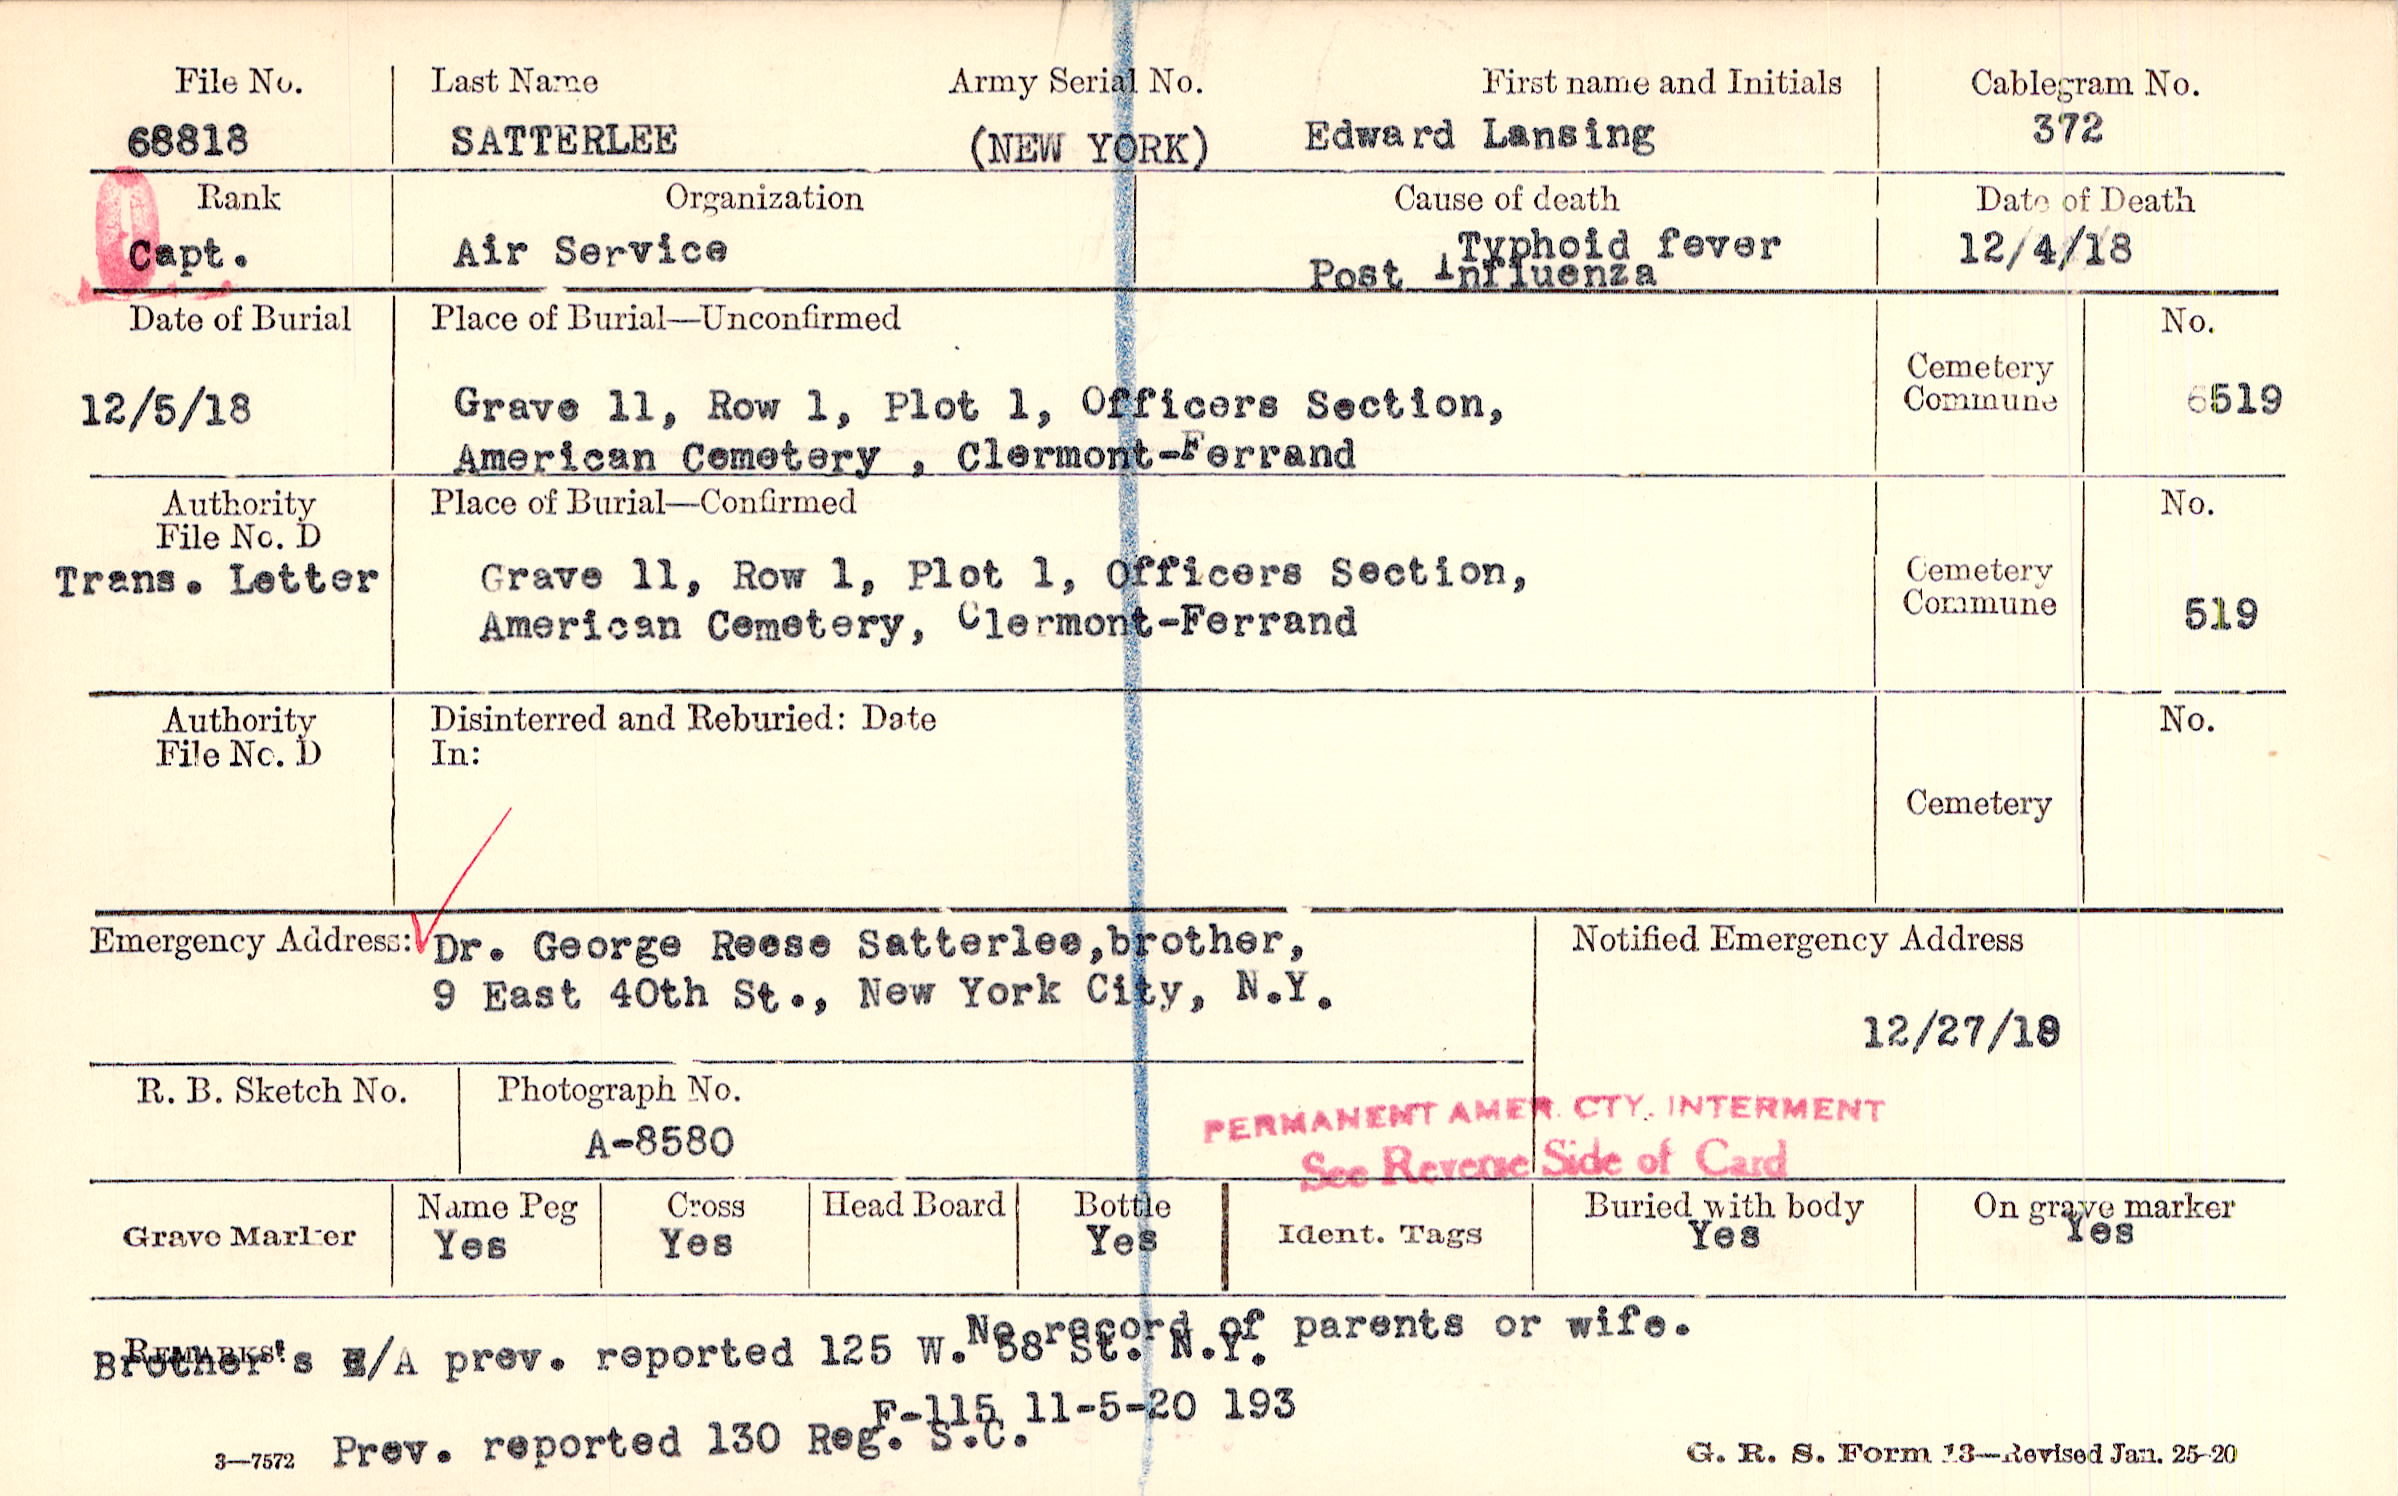 File No. Last Name Army Serial No. First name and Initials Cablegram No.
68818 SATTERLEE (NEW YORK) Edward Lansing 372
Rank Organization Cause of death Date of Death
Capt. Air Service Typhoid fever 12/4/18
Post influenza
Date of Burial Place of Burial—Unconfirmed No.
Cemetery
Commune
12/5/18 Grave 11, Row 1, Plot 1, Officers Section, 6519
American Cemetery , Clermont-Ferrand
Authority Place of Burial—Confirmed No.
File No. D
Trans. Letter Grave 11, Row 1, Plot 1, Officers Section, Cemetery
American Cemetery, Clermont-Ferrand Commune 519
Authority Disinterred and Reburied: Date No.
File No. D In:
Cemetery
Emergency Address: Dr. George Reese Satterlee,brother, Notified Emergency Address
9 East 40th St., New York City, N.Y.
12/27/18
R. B. Sketch No. Photograph No.
A-8580
PERMANENT AMER. CTY. INTERMENT
See Reverse Side of Card
Grave Marker Name Peg Cross Head Board Bottle Ident. Tags Buried with body On grave marker
Yes Yes Yes Yes Yes
No record of parents or wife.
REMARKS:
Brother's E/A prev. reported 125 W. 58 St. N.Y.
F-115 11-5-20 193
Prev. reported 130 Reg. S.C.
3—7572 G. R. S. Form 13—Revised Jan. 25-20